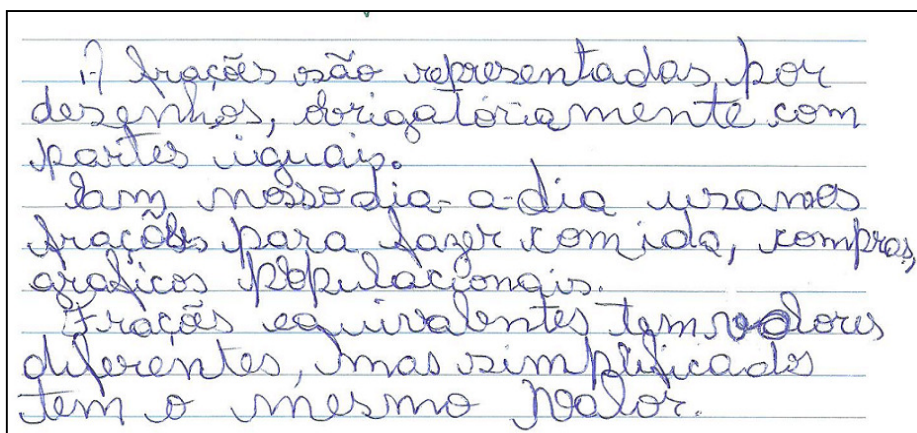 1-) frações são representadas por
desenhos, obrigatóriamente com
partes iguais.
Em nosso dia-a-dia usamos
frações para fazer comida, compras,
graficos populacionais.
Frações equivalentes tem valores
diferentes, mas simplificados
tem o mesmo valor.